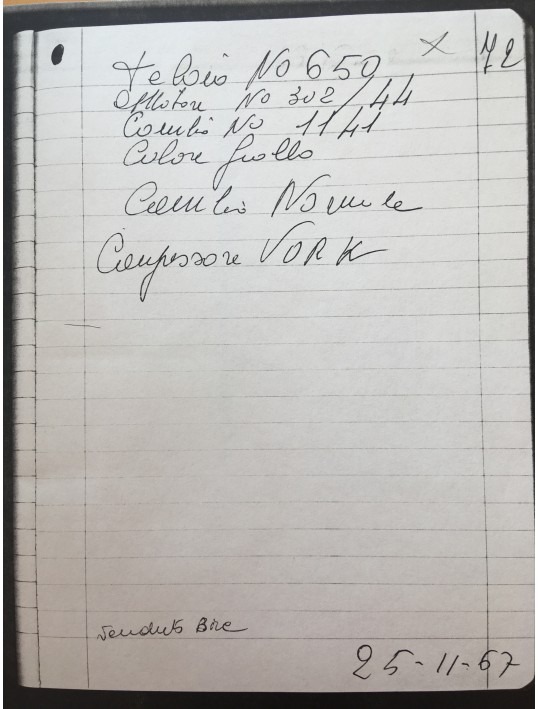 X 72
Telaio No 650
Motore No 302/44
Cambio No 11/41
Colore Giallo
Cambio Normale
Compressore VORK
Venduto Bire
25-11-67